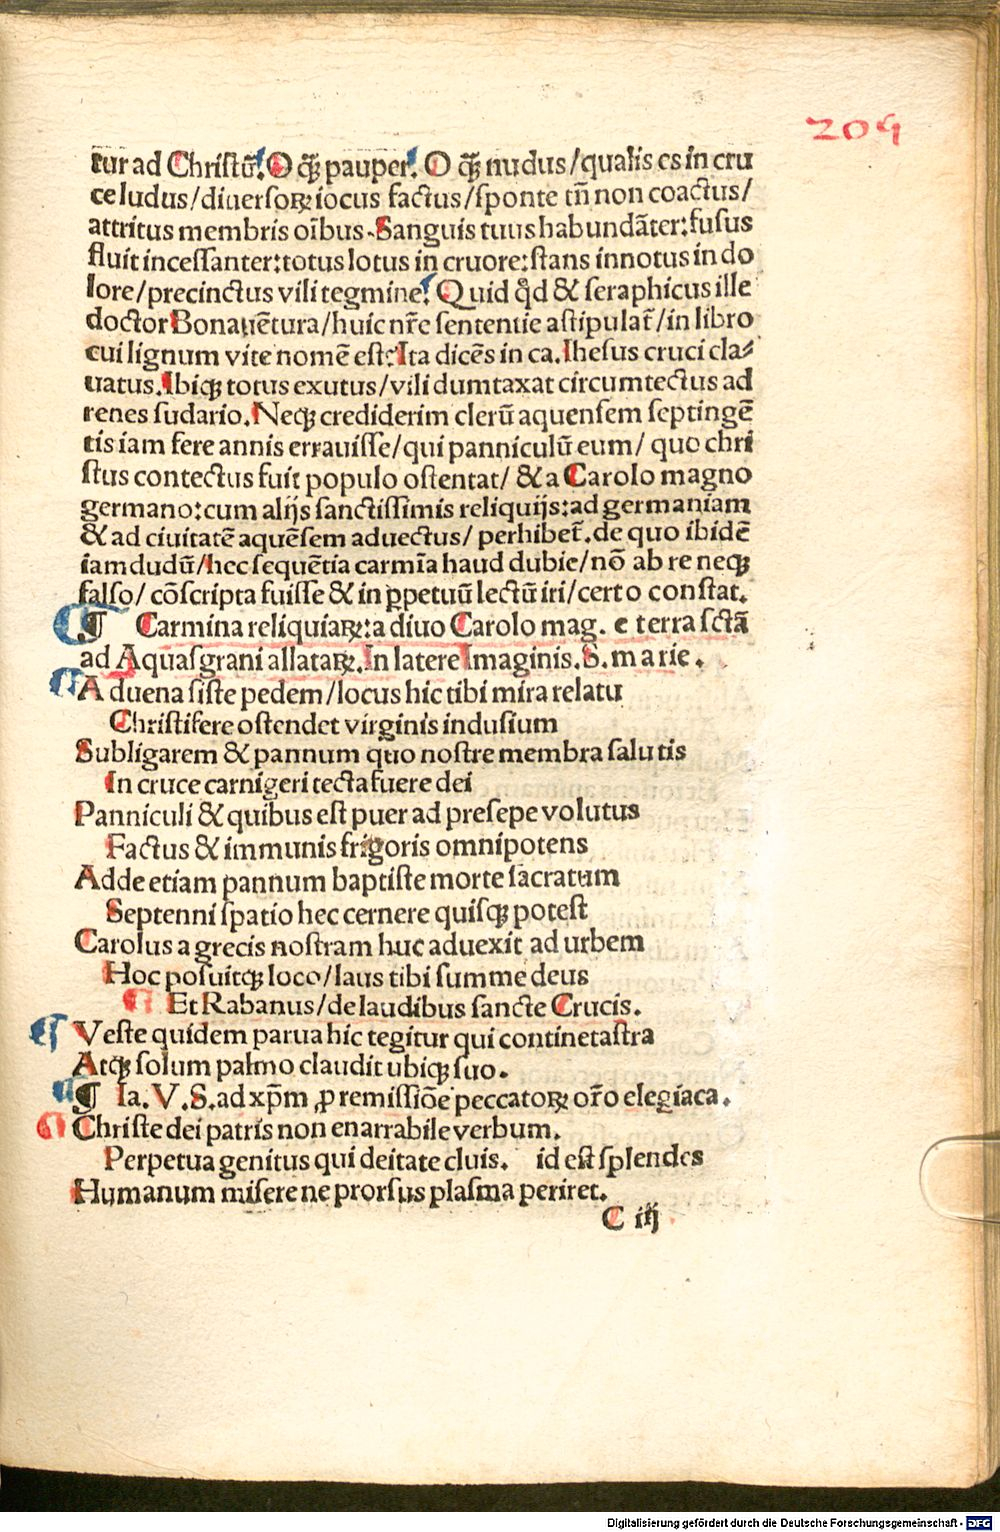 209
tur ad Christū. O qȝ pauper. O qȝ nudus/qualis es in cru
ce ludus/diuersoꝝ iocus factus/sponte tñ non coactus/
attritus membris oībus. Sanguis tuus habundāter:fusus
fluit incessanter:totus lotus in cruore:stans innotus in do
lore/precinctus vili tegmine. Quid qd̄ & seraphicus ille
doctor Bonauētura/huic nr̄e sententie astipulat̄/in libro
cui lignum vite nomē est:Ita dicēs in ca. Ihesus cruci cla⸗
uatus. Ibiqꝫ totus exutus/vili dumtaxat circumtectus ad
renes sudario. Neqꝫ crediderim clerū aquensem septingē
tis iam fere annis errauisse/qui panniculū eum/ quo chri
stus contectus fuit populo ostentat/ & a Carolo magno
germano:cum alijs sanctissimis reliquijs:ad germaniam
& ad ciuitatē aquēsem aduectus/ perhibet̄. de quo ibidē
iamdudū/hec sequētia carmīa haud dubie/nō ab re neqꝫ
falso/ cōscripta fuisse & in ꝑpetuū lectū iri/certo constat.
¶ Carmina reliquiaꝝ:a diuo Carolo mag. e terra sctā
ad Aquasgrani allataꝝ. In latere Imaginis. S. marie.
Aduena siste pedem/locus hic tibi mira relatu
Christifere ostendet virginis indusium
Subligarem & pannum quo nostre membra salutis
In cruce carnigeri tecta fuere dei
Panniculi & quibus est puer ad presepe volutus
Factus & immunis frigoris omnipotens
Adde etiam pannum baptiste morte sacratum
Septenni spatio hec cernere quisqꝫ potest
Carolus a grecis nostram huc aduexit ad urbem
Hoc posuitqꝫ loco/laus tibi summe deus
Et Rabanus/de laudibus sancte Crucis.
Veste quidem parua hic tegitur qui continet astra
Atqꝫ solum palmo claudit ubiqꝫ suo.
¶ Ia. V. S. ad xp̄m ꝓ remissiōe peccatoꝝ or̄o elegiaca.
Christe dei patris non enarrabile verbum.
Perpetua genitus qui deitate cluis. id est splendes
Humanum misere ne prorsus plasma periret.
C iij
Digitalisierung gefördert durch die Deutsche Forschungsgemeinschaft - DFG